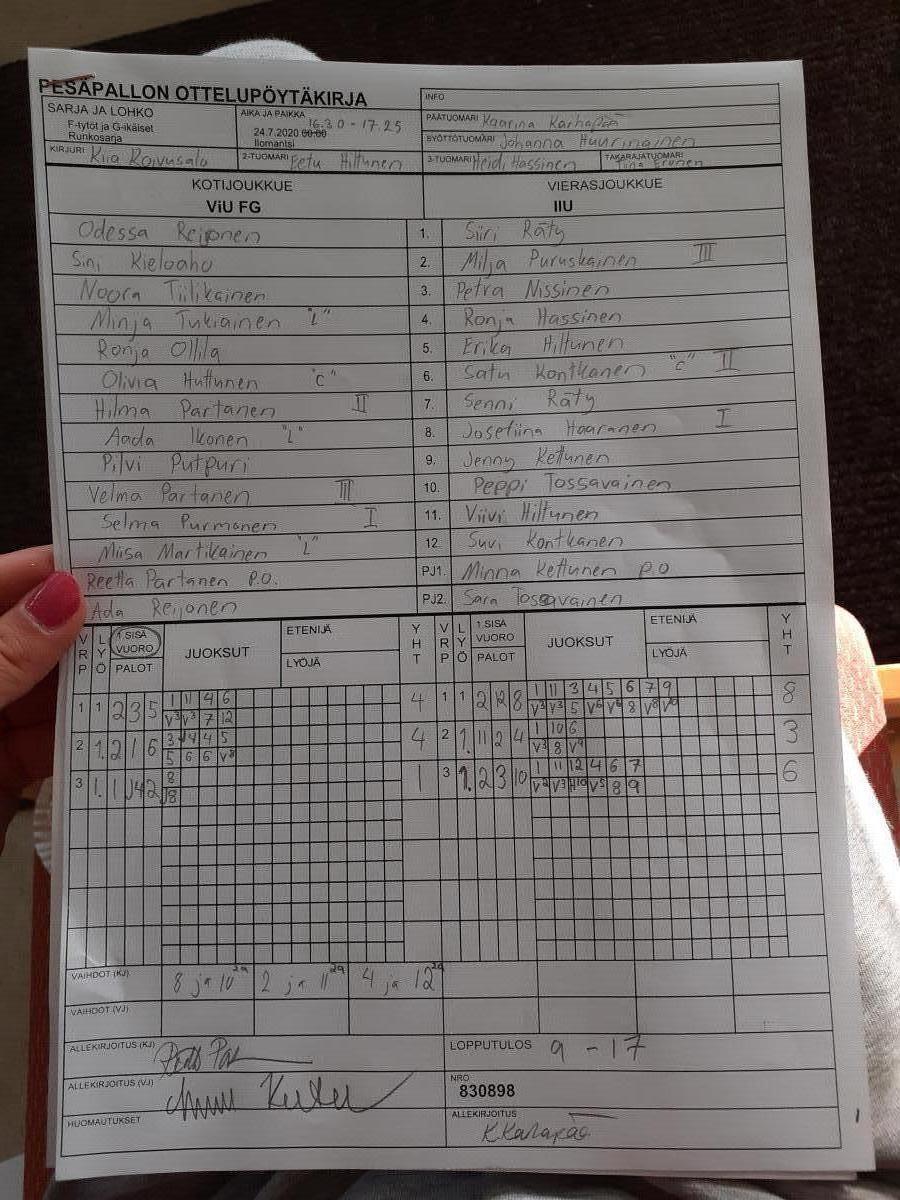 PESÄPALLON OTTELUPÖYTÄKIRJA
INFO
SARJA JA LOHKO
F-tytöt ja G-ikäiset
Runkosarja
AIKA JA PAIKKA 16.30 - 17.25
24.7.2020 00:00
Ilomantsi
PÄÄTUOMARI Kaarina Karhapää
SYÖTTÖTUOMARI Johanna Huurinainen
KIRJURI Kiia Roivusalo
2-TUOMARI Petu Hiltunen
3-TUOMARI Heidi Hassinen
TAKARAJATUOMARI Tiina Eronen
KOTIJOUKKUE VIERASJOUKKUE
ViU FG IIU
Odessa Reijonen 1. Siiri Räty
Sini Kieloaho 2. Milja Puruskainen III
Noora Tiilikainen 3. Petra Nissinen
Minja Tukiainen "L" 4. Ronja Hassinen
Ronja Ollila 5. Erika Hiltunen
Olivia Huttunen "C" 6. Satu Kontkanen "C" II
Hilma Partanen II 7. Senni Räty
Aada Ikonen "L" 8. Josefiina Haaranen I
Pilvi Putpuri 9. Jenny Kettunen
Velma Partanen III 10. Peppi Tossavainen
Selma Purmonen I 11. Viivi Hiltunen
Miisa Martikainen "L" 12 Suvi Kontkanen
Reetta Partanen P.O. PJ1. Minna Kettunen P.O
Ada Reijonen PJ2. Sara Tossavainen
VRP LYÖ 1.SISÄ VUORO PALOT JUOKSUT ETENIJÄ LYÖJÄ YHT VRP LYÖ 1.SISÄ VUORO PALOT JUOKSUT ETENIJÄ LYÖJÄ YHT
1 1 2 3 5 1 11 4 6 4 1 1 2 12 8 1 11 3 4 5 6 7 9 8
V3 V3 7 12 V3 V3 5 V6 V6 8 V8 V9
2 1. 2 1 6 3 4 4 5 4 2 1. 11 2 4 1 10 6 3
5 6 6 V8 V3 8 V9
3 1. 1 4 2 8 1 3 1. 2 3 10 1 11 12 4 6 7 6
8 V2 V3 H10 V5 8 9
VAIHDOT (KJ) 8 ja 10 2a 2 ja 11 2a 4 ja 12 2a
VAIHDOT (VJ)
ALLEKIRJOITUS (KJ)
LOPPUTULOS 9 - 17
ALLEKIRJOITUS (VJ)
NRO
830898
HUOMAUTUKSET
ALLEKIRJOITUS
K.Karhapää